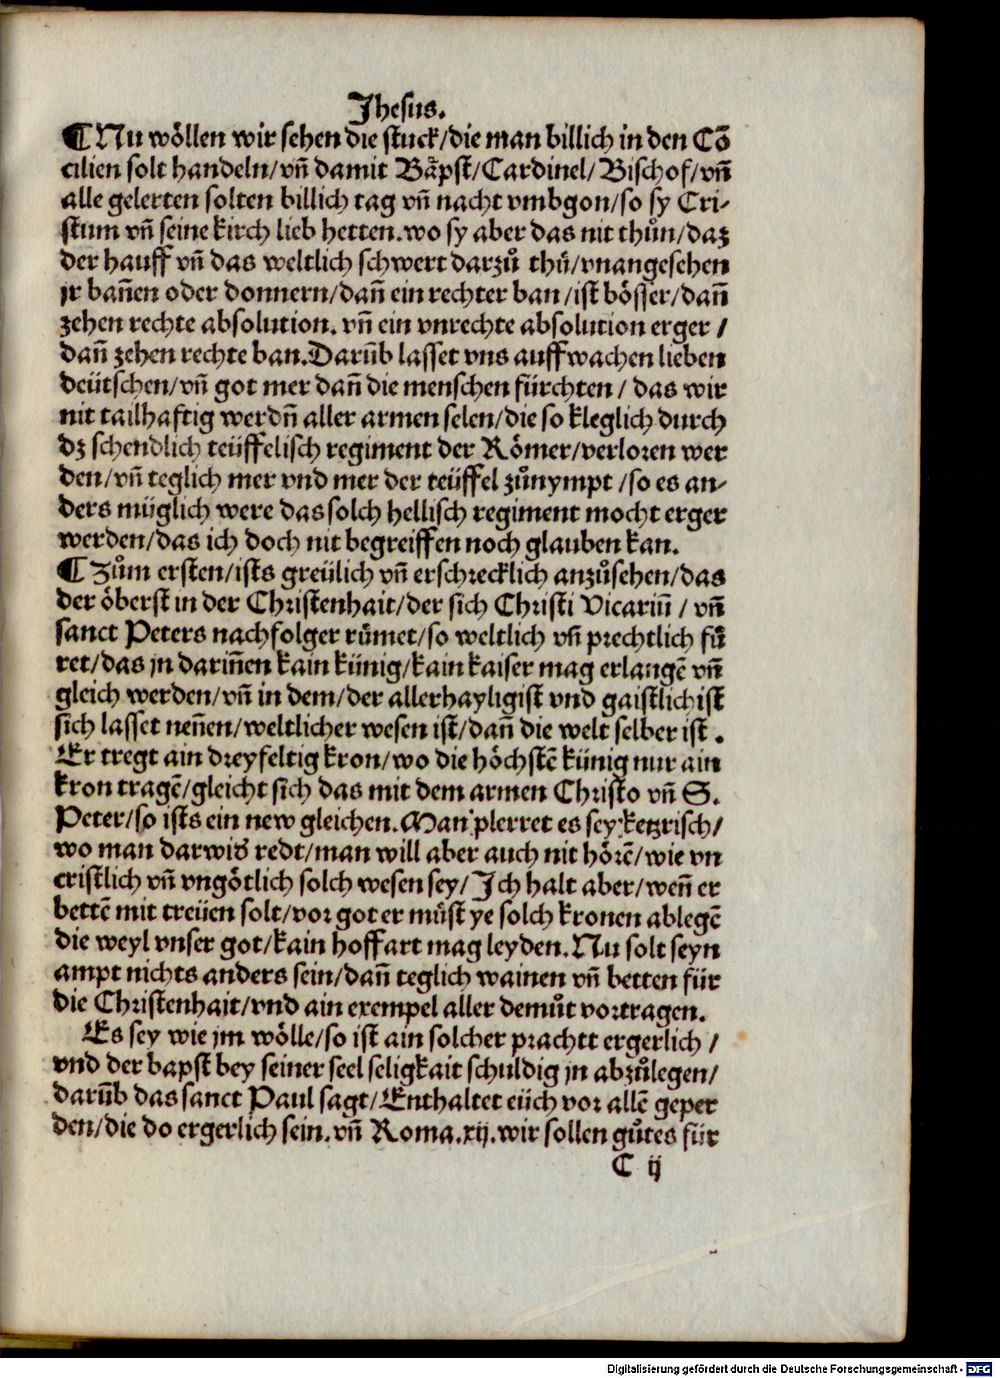 Jhesus.
¶ Nu wöllen wir sehen die stuck/die man billich in den Cō
cilien solt handeln/vñ damit Bäpst/Cardinel/Bischof/vñ
alle gelerten solten billich tag vñ nacht vmbgon/so sy Cri-
stum vñ seine kirch lieb hetten.wo sy aber das nit thůn/daz
der hauff vñ das weltlich schwert darzů thü/vnangesehen
jr bañen oder donnern/dañ ein rechter ban/ist bösser/dañ
zehen rechte absolution. vñ ein vnrechte absolution erger/
dañ zehen rechte ban.Darūb lasset vns auffwachen lieben
deütschen/vñ got mer dañ die menschen fürchten/ das wir
nit tailhaftig werdñ aller armen selen/die so kleglich durch
dz schendlich teüffelisch regiment der Römer/verloren wer
den/vñ teglich mer vnd mer der teüffel zůnympt/so es an-
ders müglich were das solch hellisch regiment mocht erger
werden/das ich doch nit begreiffen noch glauben kan.
¶ Zům ersten/ists greülich vñ erschrecklich anzůsehen/das
der öberst in der Christenhait/der sich Christi Vicariū/ vñ
sanct Peters nachfolger rümet/so weltlich vñ prechtlich fü
ret/das jn dariñen kain künig/kain kaiser mag erlangē vñ
gleich werden/vñ in dem/der allerhayligist vnd gaistlichist
sich lasset neñen/weltlicher wesen ist/dañ die welt selber ist.
Er tregt ain dreyfeltig kron/wo die höchstē künig nur ain
kron tragē/gleicht sich das mit dem armen Christo vñ S.
Peter/so ists ein new gleichen.Man plerret es sey ketzrisch/
wo man darwid redt/man will aber auch nit hörē/wie vn
cristlich vñ vngötlich solch wesen sey/Ich halt aber/weñ er
bettē mit treüen solt/vor got er müst ye solch kronen ablegē
die weyl vnser got/kain hoffart mag leyden.Nu solt seyn
ampt nichts anders sein/dañ teglich wainen vñ betten für
die Christenhait/vnd ain exempel aller demůt vortragen.
Es sey wie jm wölle/so ist ain solcher prachtt ergerlich/
vnd der bapst bey seiner seel seligkait schuldig jn abzůlegen/
darūb das sanct Paul sagt/Enthaltet eüch vor allē geper
den/die do ergerlich sein.vñ Roma.xij.wir sollen gůtes für
C ij
Digitalisierung gefördert durch die Deutsche Forschungsgemeinschaft - DFG